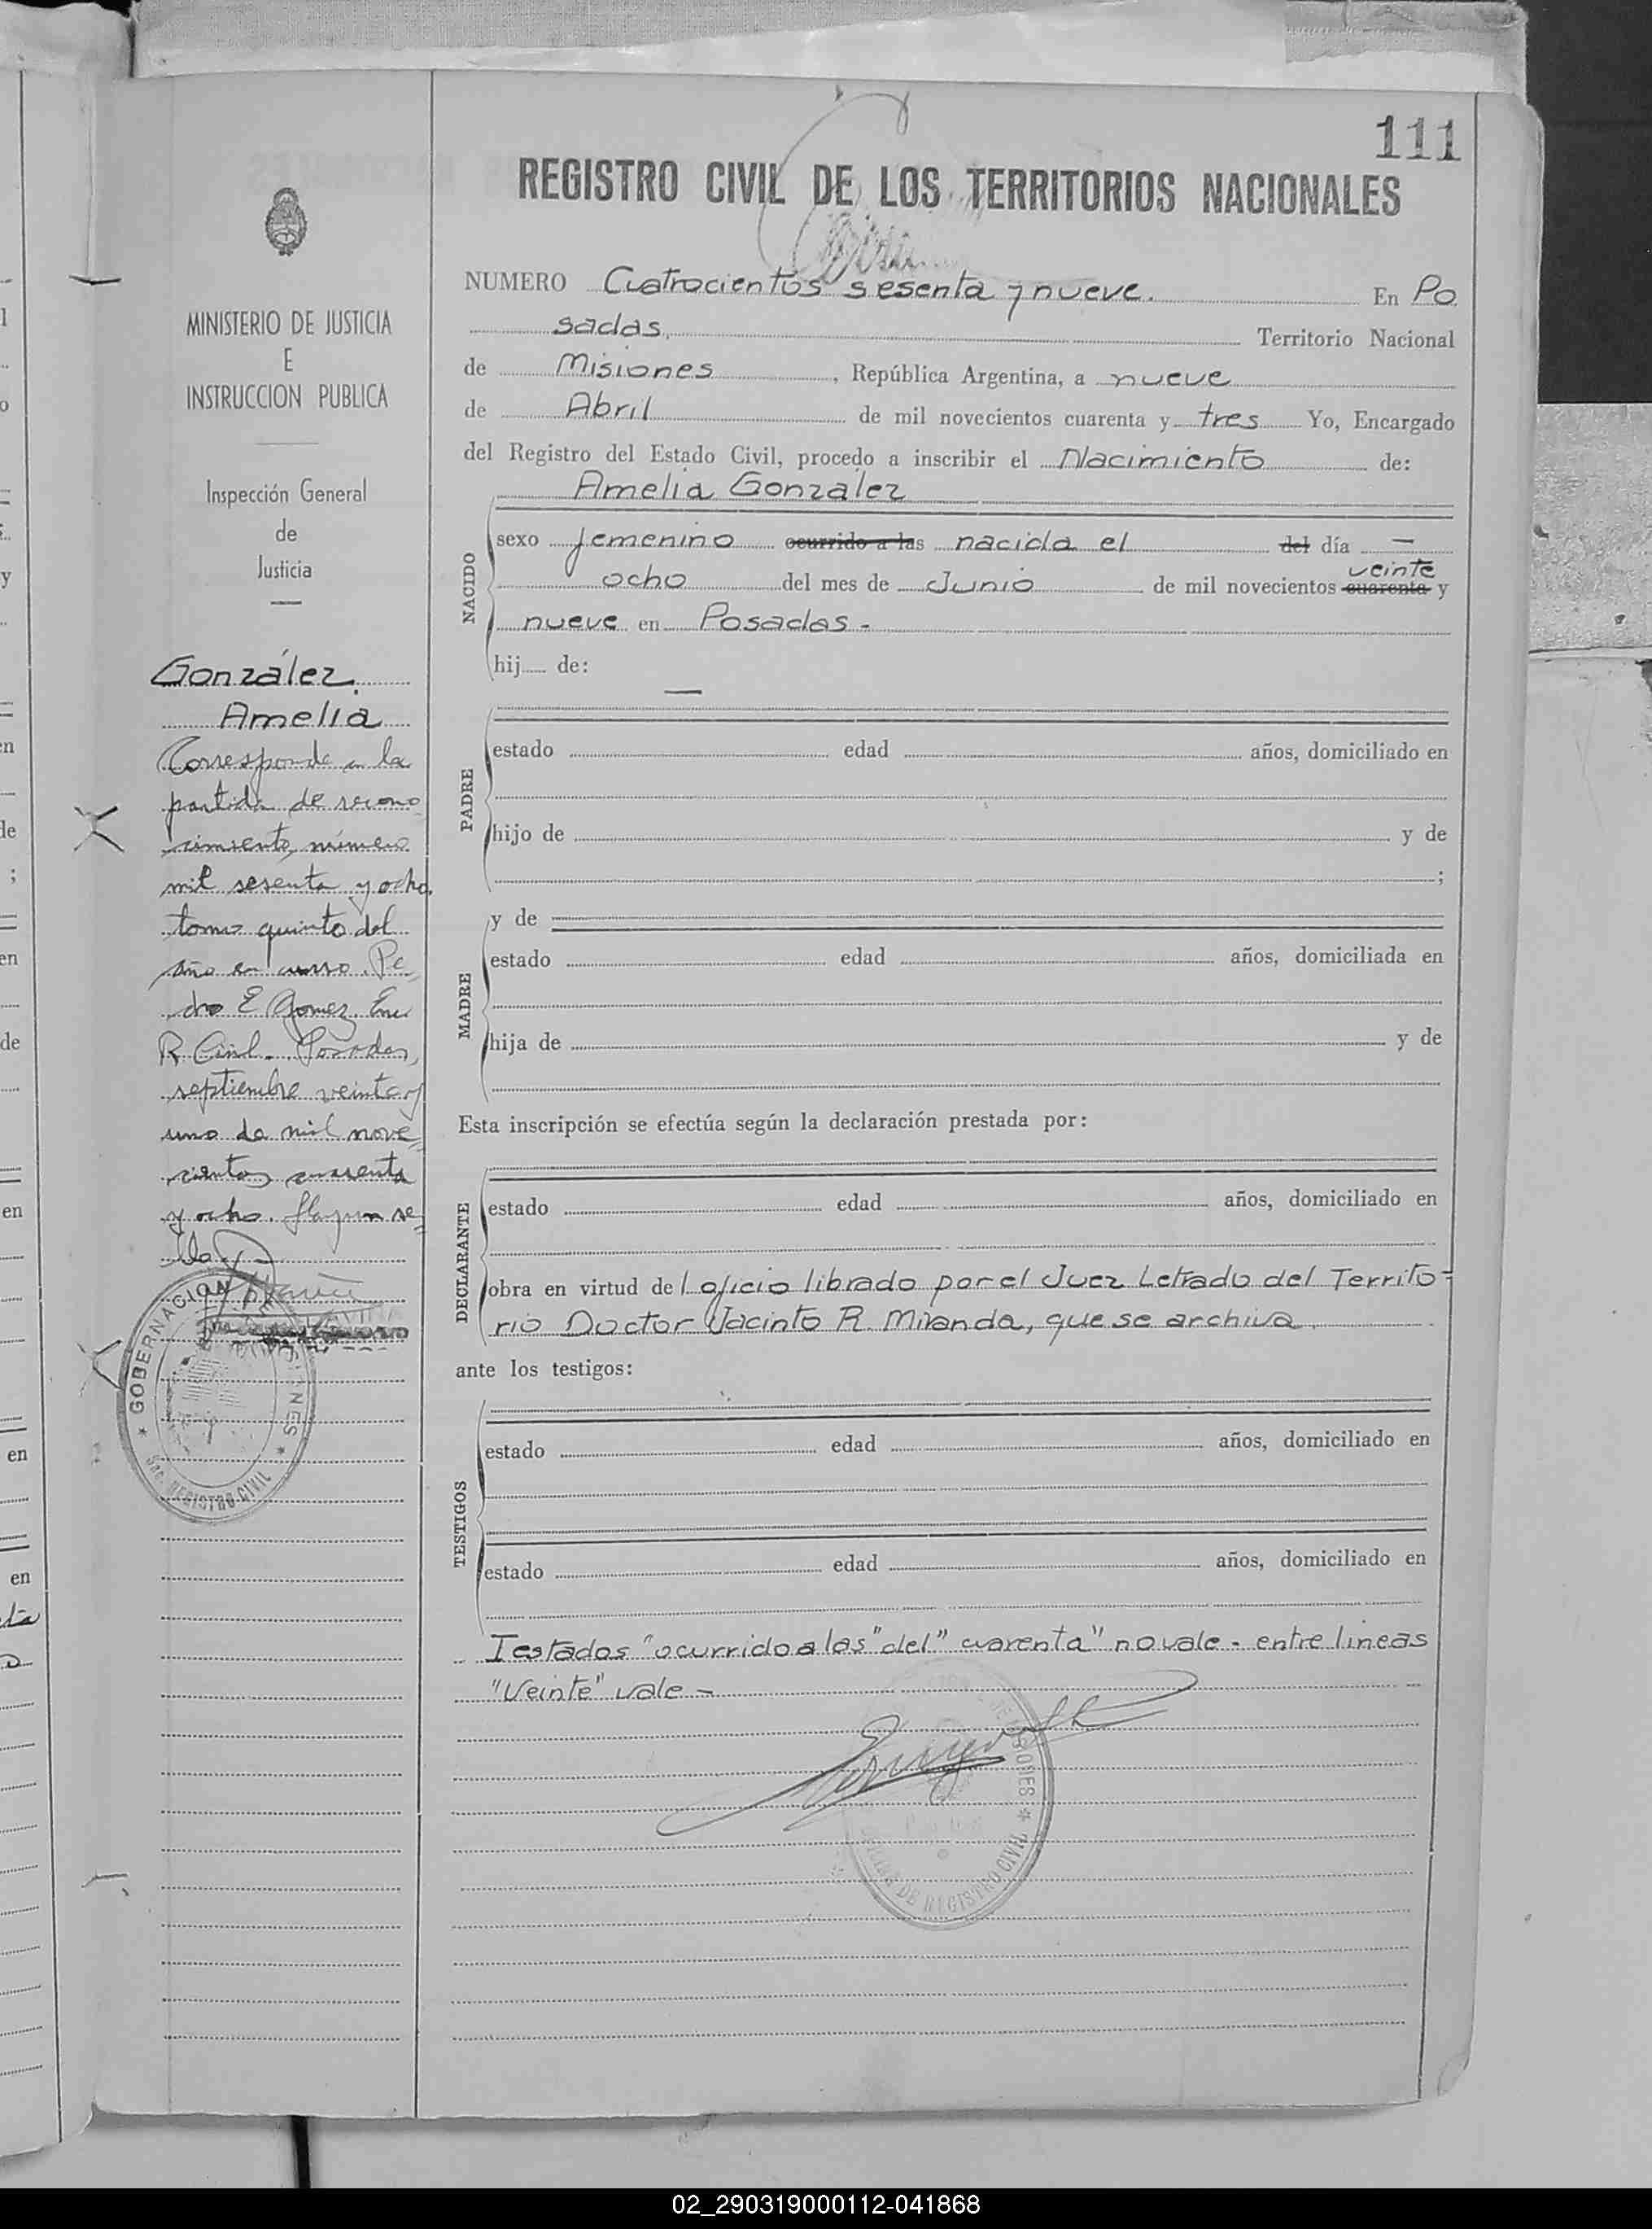 111
REGISTRO CIVIL DE LOS TERRITORIOS NACIONALES
MINISTERIO DE JUSTICIA
E
INSTRUCCION PUBLICA
Inspección General
de
Justicia
González
Amelia
Corresponde a la
partida de recono
cimiento número
mil sesenta y ocho
tomo quinto del
año en curso. Pe
dro E Gomez. Enc
R Civil. Posadas,
septiembre veinte y
uno de mil nove
cientos cuarenta
y ocho. Hay un se
llo
GOBERNACION
REGISTRO CIVIL
NUMERO Cuatrocientos sesenta y nueve. En Po
sadas. Territorio Nacional
de Misiones, República Argentina, a nueve
de Abril de mil novecientos cuarenta y tres Yo, Encargado
del Registro del Estado Civil, procedo a inscribir el Nacimiento de:
NACIDO
Amelia Gonzalez
sexo femenino ocurrido a las nacida el del día —
veinte
ocho del mes de Junio de mil novecientos cuarenta y
nueve en Posadas -
hij de:
—
PADRE
estado edad años, domiciliado en
hijo de y de
;
MADRE
y de
estado edad años, domiciliada en
hija de y de
Esta inscripción se efectúa según la declaración prestada por:
DECLARANTE
estado edad años, domiciliado en
obra en virtud del oficio librado por el Juez Letrado del Territo-
rio Doctor Jacinto R. Miranda, que se archiva.
ante los testigos:
TESTIGOS
estado edad años, domiciliado en
estado edad años, domiciliado en
Testados "ocurrido a las" del" cuarenta" no vale - entre lineas
"Veinte" vale -
DE REGISTRO CIVIL
en
en
en
en
en
de
de
02_290319000112-041868